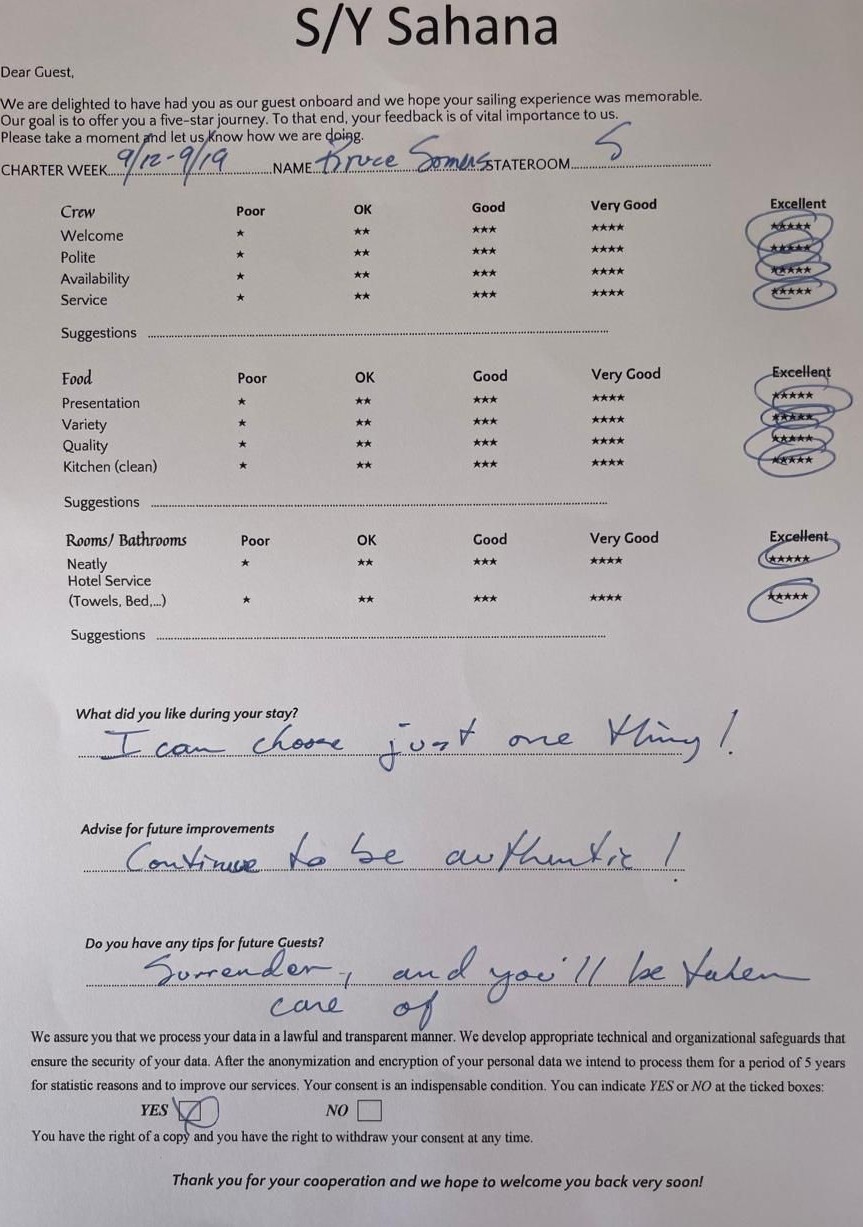 S/Y Sahana
Dear Guest,
We are delighted to have had you as our guest onboard and we hope your sailing experience was memorable.
Our goal is to offer you a five-star journey. To that end, your feedback is of vital importance to us.
Please take a moment and let us know how we are doing.
CHARTER WEEK 9/12-9/19 NAME Bruce Somers STATEROOM 5
Crew Poor OK Good Very Good Excellent
Welcome ★ ★★ ★★★ ★★★★ ★★★★★
Polite ★ ★★ ★★★ ★★★★ ★★★★★
Availability ★ ★★ ★★★ ★★★★ ★★★★★
Service ★ ★★ ★★★ ★★★★ ★★★★★
Suggestions
Food Poor OK Good Very Good Excellent
Presentation ★ ★★ ★★★ ★★★★ ★★★★★
Variety ★ ★★ ★★★ ★★★★ ★★★★★
Quality ★ ★★ ★★★ ★★★★ ★★★★★
Kitchen (clean) ★ ★★ ★★★ ★★★★ ★★★★★
Suggestions
Rooms/ Bathrooms Poor OK Good Very Good Excellent
Neatly ★ ★★ ★★★ ★★★★ ★★★★★
Hotel Service
(Towels, Bed,...) ★ ★★ ★★★ ★★★★ ★★★★★
Suggestions
What did you like during your stay?
I can choose just one thing!
Advise for future improvements
Continue to be authentic!
Do you have any tips for future Guests?
Surrender, and you'll be taken
care of
We assure you that we process your data in a lawful and transparent manner. We develop appropriate technical and organizational safeguards that
ensure the security of your data. After the anonymization and encryption of your personal data we intend to process them for a period of 5 years
for statistic reasons and to improve our services. Your consent is an indispensable condition. You can indicate YES or NO at the ticked boxes:
YES NO
You have the right of a copy and you have the right to withdraw your consent at any time.
Thank you for your cooperation and we hope to welcome you back very soon!